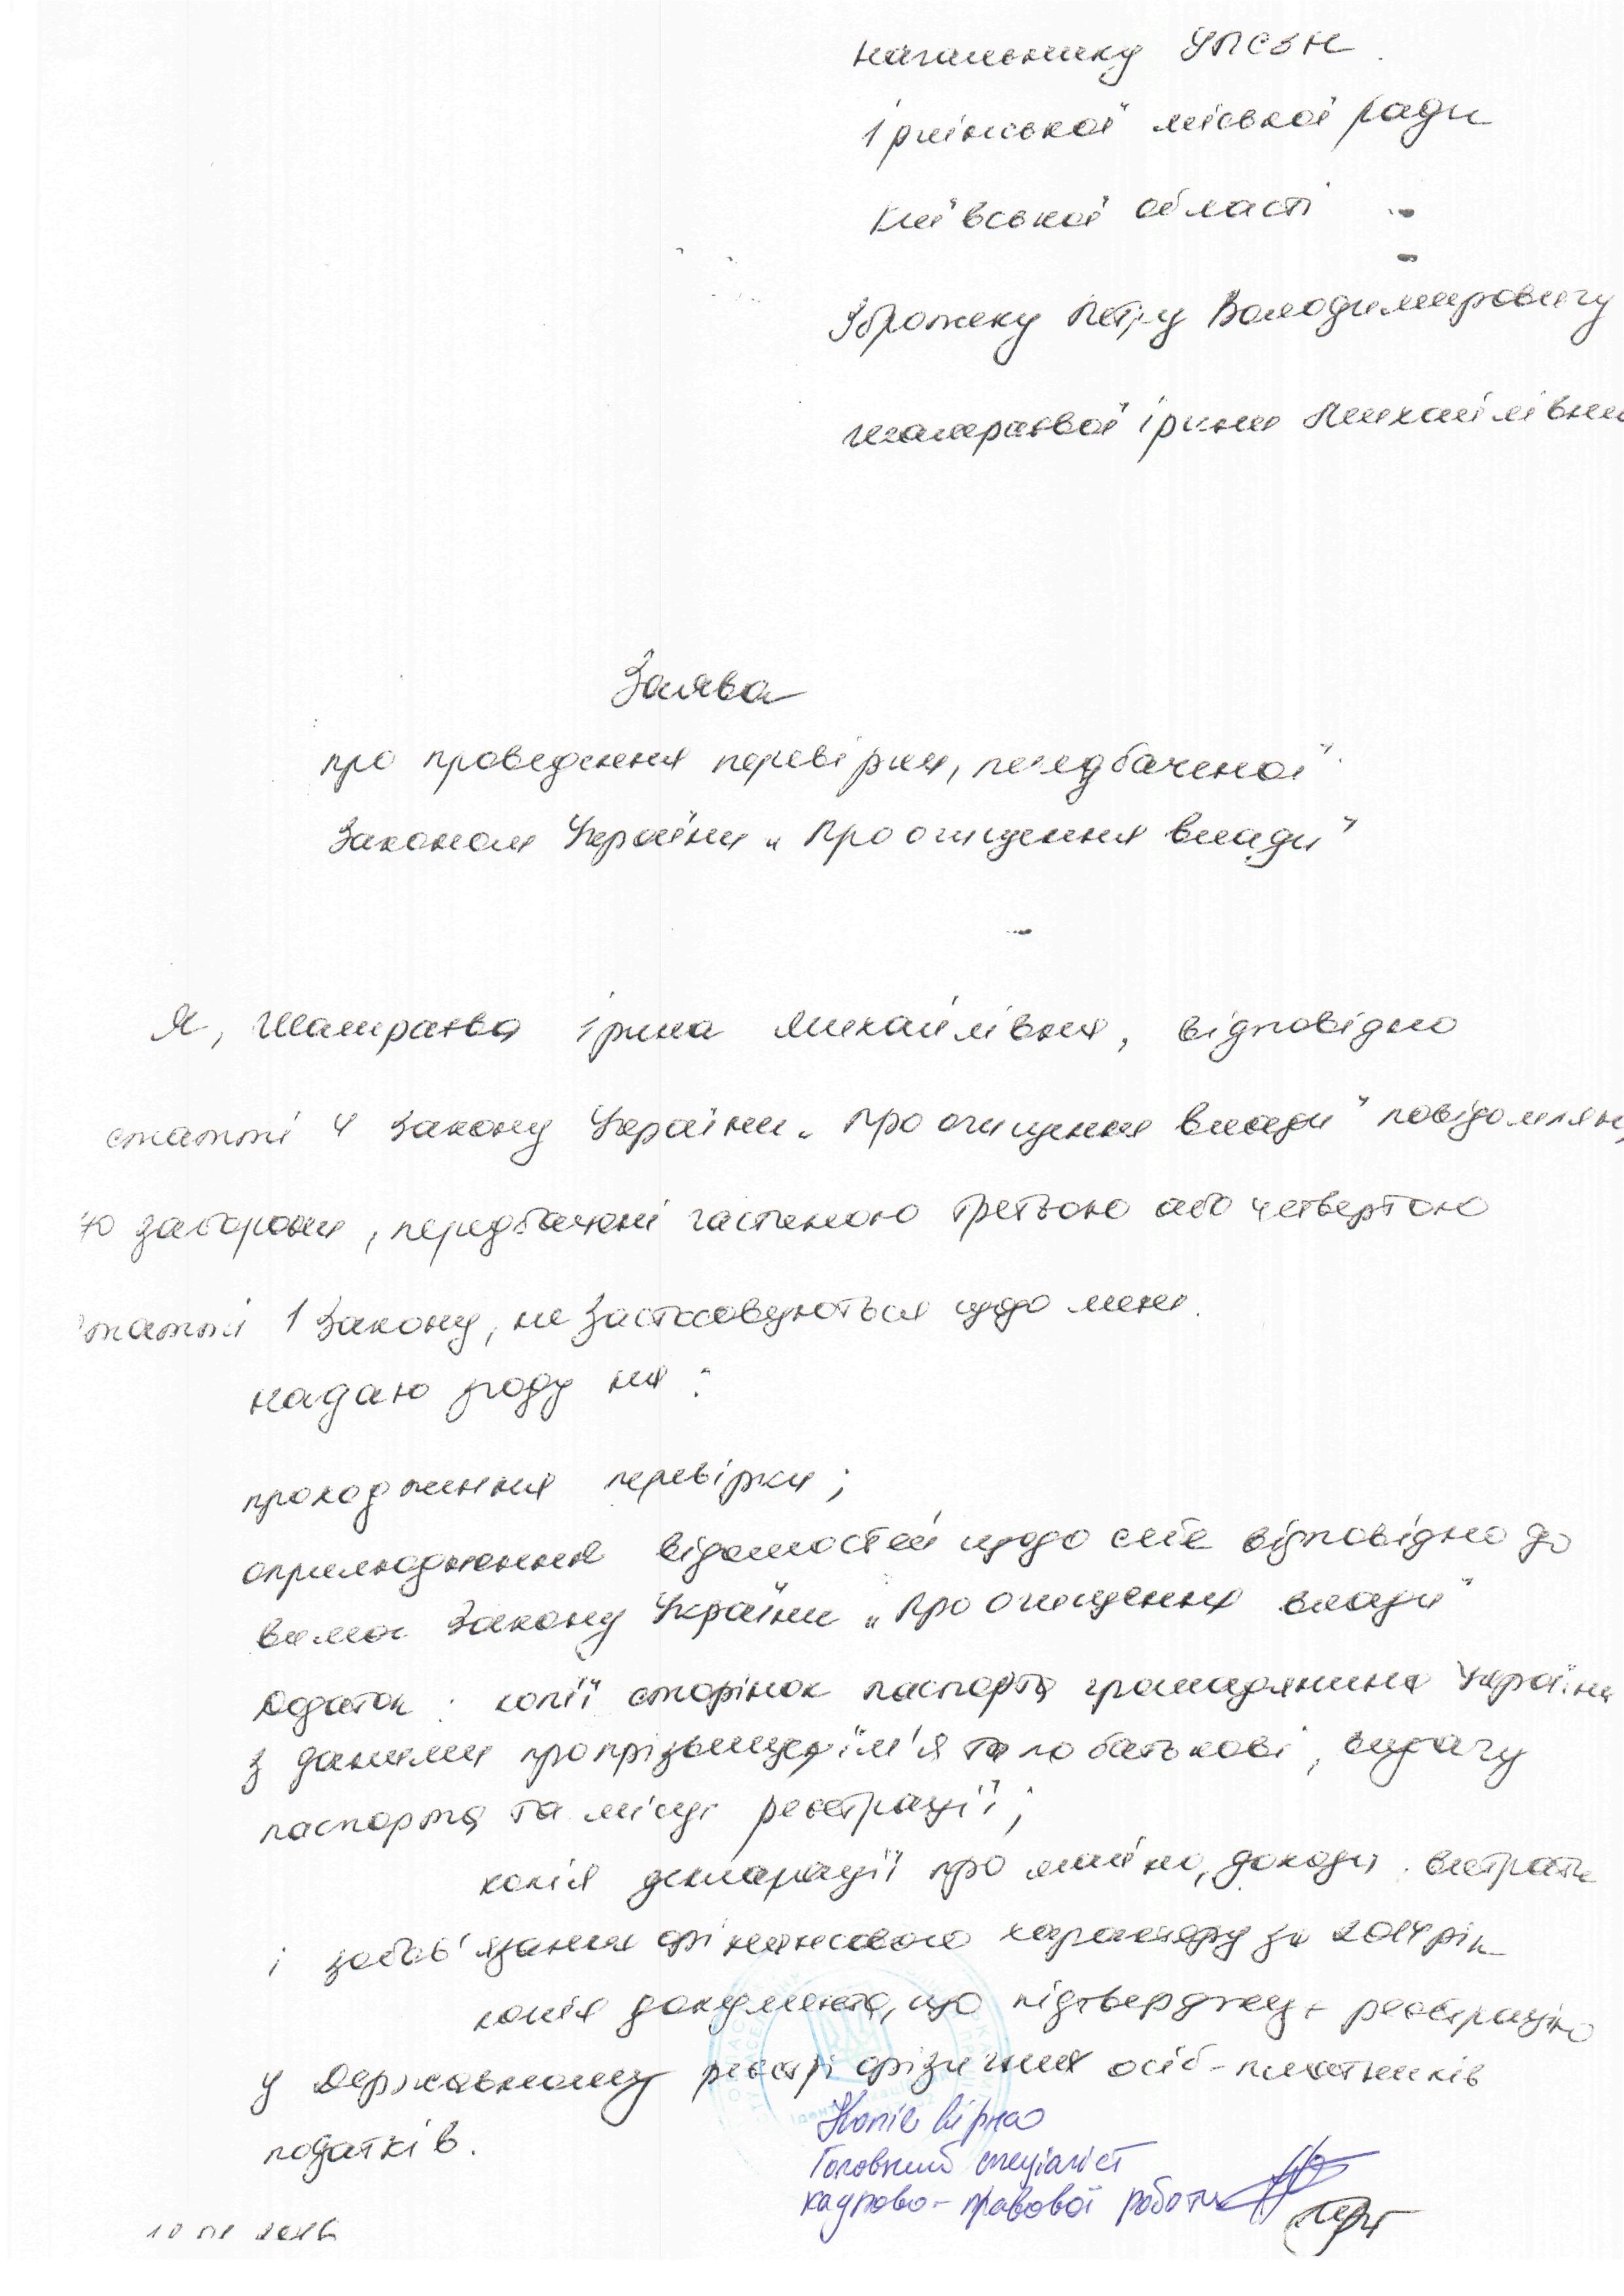 Начальнику УПСЗН
Ірпінської міської ради
Київської області
Збромеку Петру Володимировичу
Ірини Михайлівни
Заява
про проведення перевірки, передбаченої
Законом України „Про очищення влади”
Я, Ірина Михайлівна, відповідно
статті 4 Закону України „Про очищення влади” повідомляю,
що заборони, передбачені частиною третьою або четвертою
статті 1 Закону, не застосовуються щодо мене.
Надаю згоду на:
проходження перевірки;
оприлюднення відомостей щодо себе відповідно до
вимог Закону України „Про очищення влади”
Додаток: копії сторінок паспорта громадянина України
з даними про прізвище, ім'я та по батькові, видачу
паспорта та місце реєстрації;
копія декларації про майно, доходи, витрати
і зобов'язання фінансового характеру за 2014 рік
копія документа, що підтверджує реєстрацію
у Державному реєстрі фізичних осіб-платників
податків.
Копія вірна
Головний спеціаліст
кадрово-правової роботи